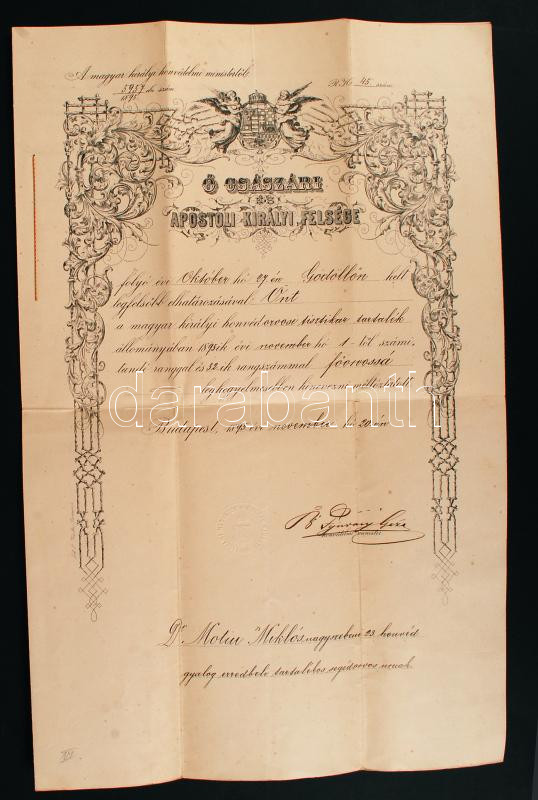 A magyar királyi honvédelmi ministertől.
5957 ds. szám
1895
R.H. 45 szám.
Ő CSÁSZÁRI
ÉS
APOSTOLI KIRÁLYI FELSÉGE
folyó évi Október hó 27 én Gödöllőn kelt
legfelsőbb elhatározásával Önt
a magyar királyi honvéd orvosi tisztikar tartalék
állományában 1895 ik évi november hó 1-től számí-
tandó ranggal és 52-ik rangszámmal főorvossá
legkegyelmesebben kinevezni méltóztatott.
darabanth
Budapest, 1895 évi november hó 20-án
Br Fejérváry Géza
honvédelmi minister
Dr. Motiu Miklós nagyszebeni 23. honvéd
gyalog ezredbeli tartalékos segédorvos urnak.